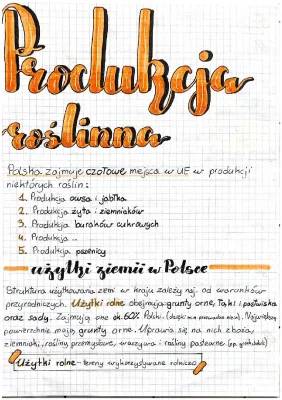 Produkcja
roślinna
Polska zajmuje czołowe miejsca w UE w produkcji
niektórych roślin:
1. Produkcja owsa i jabłka
2. Produkcja żyta i ziemniaków
3. Produkcja buraków cukrowych
4. Produkcja ..
5. Produkcja pszenicy
użytki ziemi w Polsce
Struktura użytkowania ziemi w kraju zależy naj. od warunków
przyrodniczych. Użytki rolne obejmują grunty orne, łąki i pastwiska
oraz sady. Zajmują one ok. 60% Polski. Największą
powierzchnie mają grunty orne. Uprawia się na nich zboża,
ziemniaki, rośliny przemysłowe, warzywa i rośliny pastewne
Użytki rolne - tereny wykorzystywane rolniczo